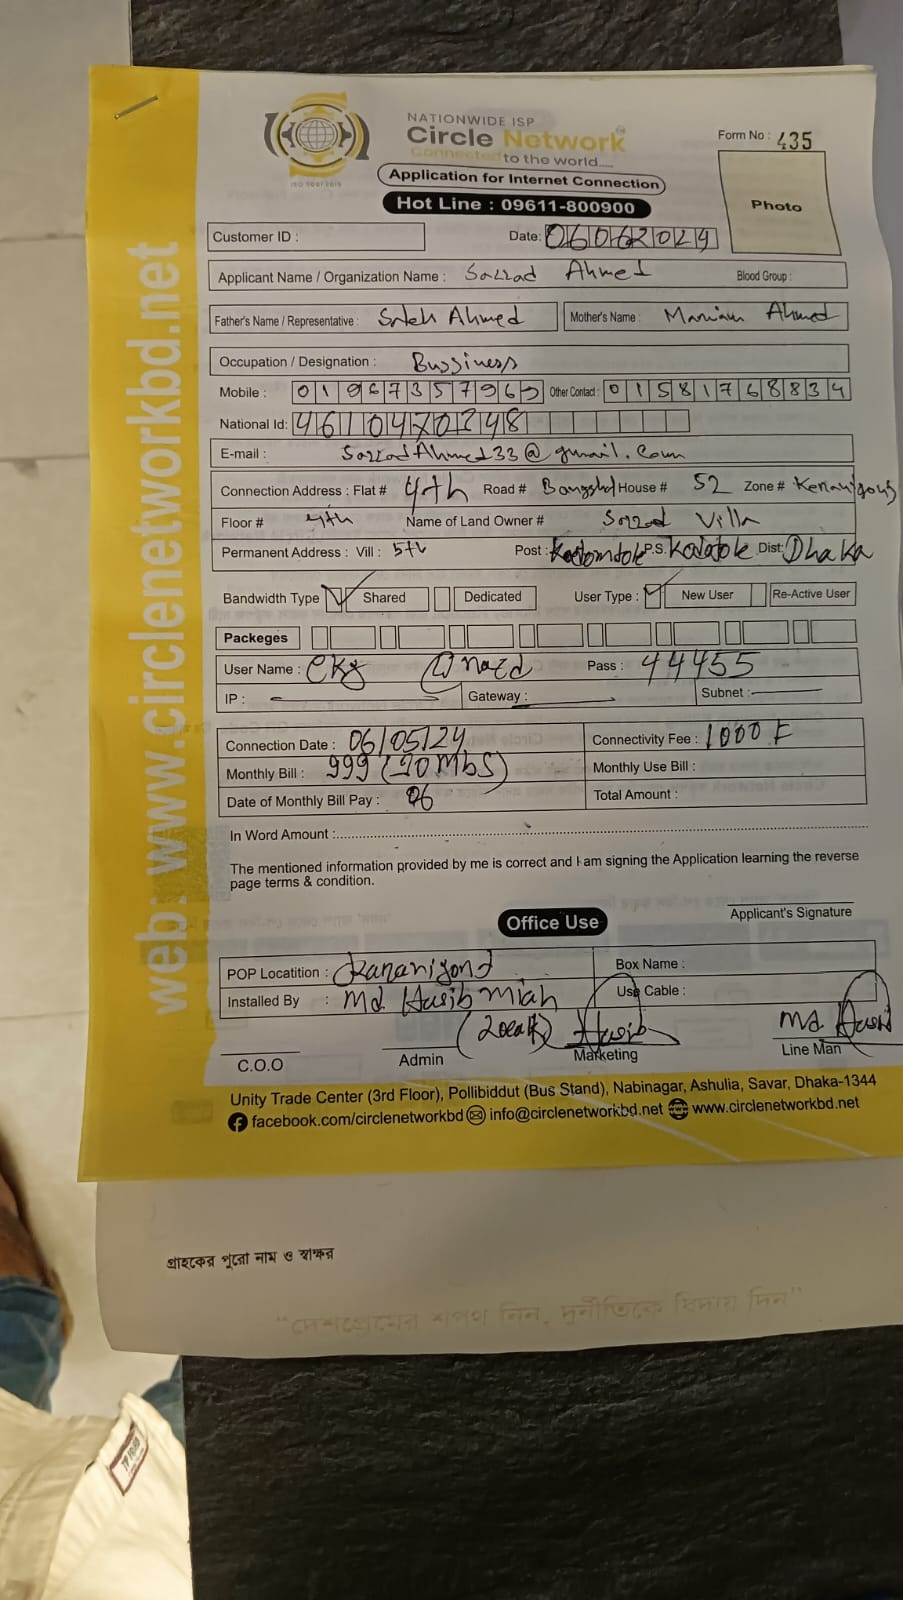 NATIONWIDE ISP
Circle Network
Connected to the world....
ISO 9001:2015
Application for Internet Connection
Hot Line : 09611-800900
Form No : 435
Photo
web: www.circlenetworkbd.net
Customer ID :
Date: 06062024
Applicant Name / Organization Name : Sazzad Ahmed Blood Group :
Father's Name / Representative : Saleh Ahmed Mother's Name : Mariam Ahmed
Occupation / Designation : Bussiness
Mobile : 01967357965 Other Contact : 01581768834
National Id: 4610470248
E-mail : SazzadAhmed33@gmail.com
Connection Address : Flat # 4th Road # Bangshal House # 52 Zone #
Floor # 4th Name of Land Owner # Sazzad Villa
Permanent Address : Vill : Post : P.S. Dist: Dhaka
Bandwidth Type Shared Dedicated User Type : New User Re-Active User
Packeges
User Name : Pass : 44455
IP : Gateway : Subnet :
Connection Date : 06/05/24 Connectivity Fee : 1000
Monthly Bill : 999 Monthly Use Bill :
Date of Monthly Bill Pay : 06 Total Amount :
In Word Amount :
The mentioned information provided by me is correct and I am signing the Application learning the reverse
page terms & condition.
Applicant's Signature
Office Use
POP Locatition : Box Name :
Installed By : Md Hasib Miah Use Cable :
Hasib Md. Hasib
C.O.O Admin Marketing Line Man
Unity Trade Center (3rd Floor), Pollibiddut (Bus Stand), Nabinagar, Ashulia, Savar, Dhaka-1344
facebook.com/circlenetworkbd info@circlenetworkbd.net www.circlenetworkbd.net
গ্রাহকের পুরো নাম ও স্বাক্ষর
"দেশপ্রেমের শপথ নিন, দুর্নীতিকে বিদায় দিন"